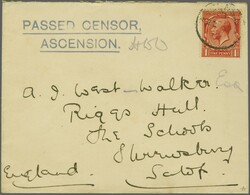 PASSED CENSOR,
ASCENSION.
A. J. West-Walker Esq
Riggs Hall.
The Schools
Shrewsbury
Salop.
England.